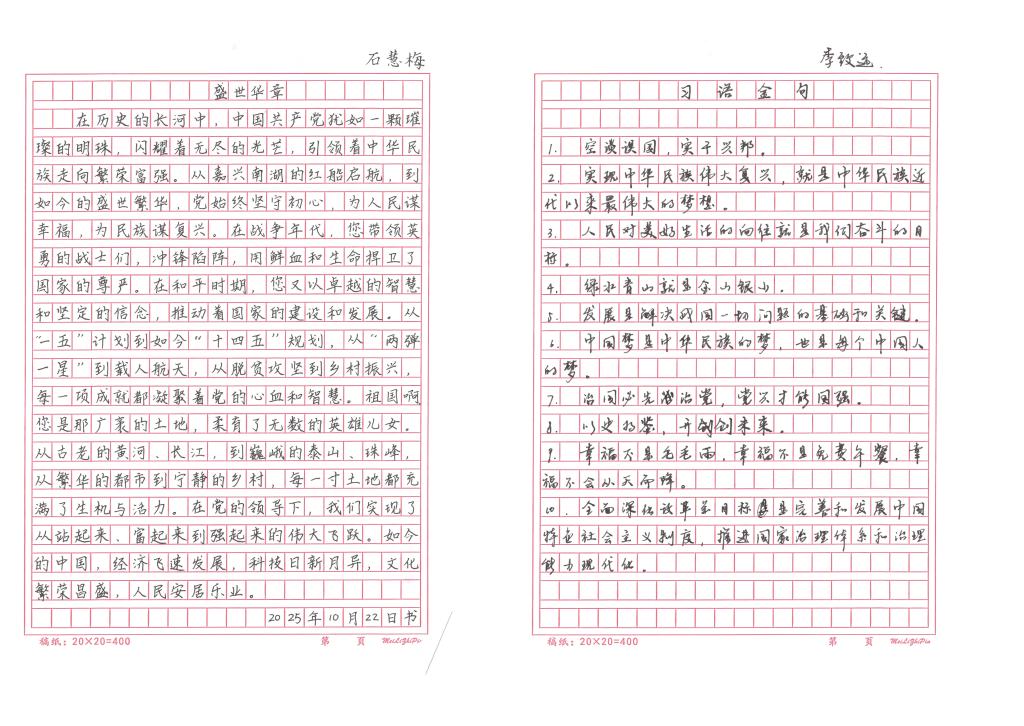 石慧梅
盛世华章
在历史的长河中，中国共产党犹如一颗璀
璨的明珠，闪耀着无尽的光芒，引领着中华民
族走向繁荣富强。从嘉兴南湖的红船启航，到
如今的盛世繁华，党始终坚守初心，为人民谋
幸福，为民族谋复兴。在战争年代，您带领英
勇的战士们，冲锋陷阵，用鲜血和生命捍卫了
国家的尊严。在和平时期，您又以卓越的智慧
和坚定的信念，推动着国家的建设和发展。从
“一五”计划到如今“十四五”规划，从“两弹
一星”到载人航天，从脱贫攻坚到乡村振兴，
每一项成就都凝聚着党的心血和智慧。祖国啊
您是那广袤的土地，柔育了无数的英雄儿女。
从古老的黄河、长江，到巍峨的泰山、珠峰，
从繁华的都市到宁静的乡村，每一寸土地都充
满了生机与活力。在党的领导下，我们实现了
从站起来、富起来到强起来的伟大飞跃。如今
的中国，经济飞速发展，科技日新月异，文化
繁荣昌盛，人民安居乐业。
2025年10月22日书
稿纸：20×20=400
第 页
MeiLiZhiPin
李致远.
习语金句
1. 空谈误国，实干兴邦。
2. 实现中华民族伟大复兴，就是中华民族近
代以来最伟大的梦想。
3. 人民对美好生活的向往就是我们奋斗的目
标。
4. 绿水青山就是金山银山。
5. 发展是解决我国一切问题的基础和关键。
6. 中国梦是中华民族的梦，也是每个中国人
的梦。
7. 治国必先治党，党兴才能国强。
8. 以史为鉴，开创未来。
9. 幸福不是毛毛雨，幸福不是免费午餐，幸
福不会从天而降。
10. 全面深化改革总目标是完善和发展中国
特色社会主义制度，推进国家治理体系和治理
能力现代化。
稿纸：20×20=400
第 页
MeiLiZhiPin